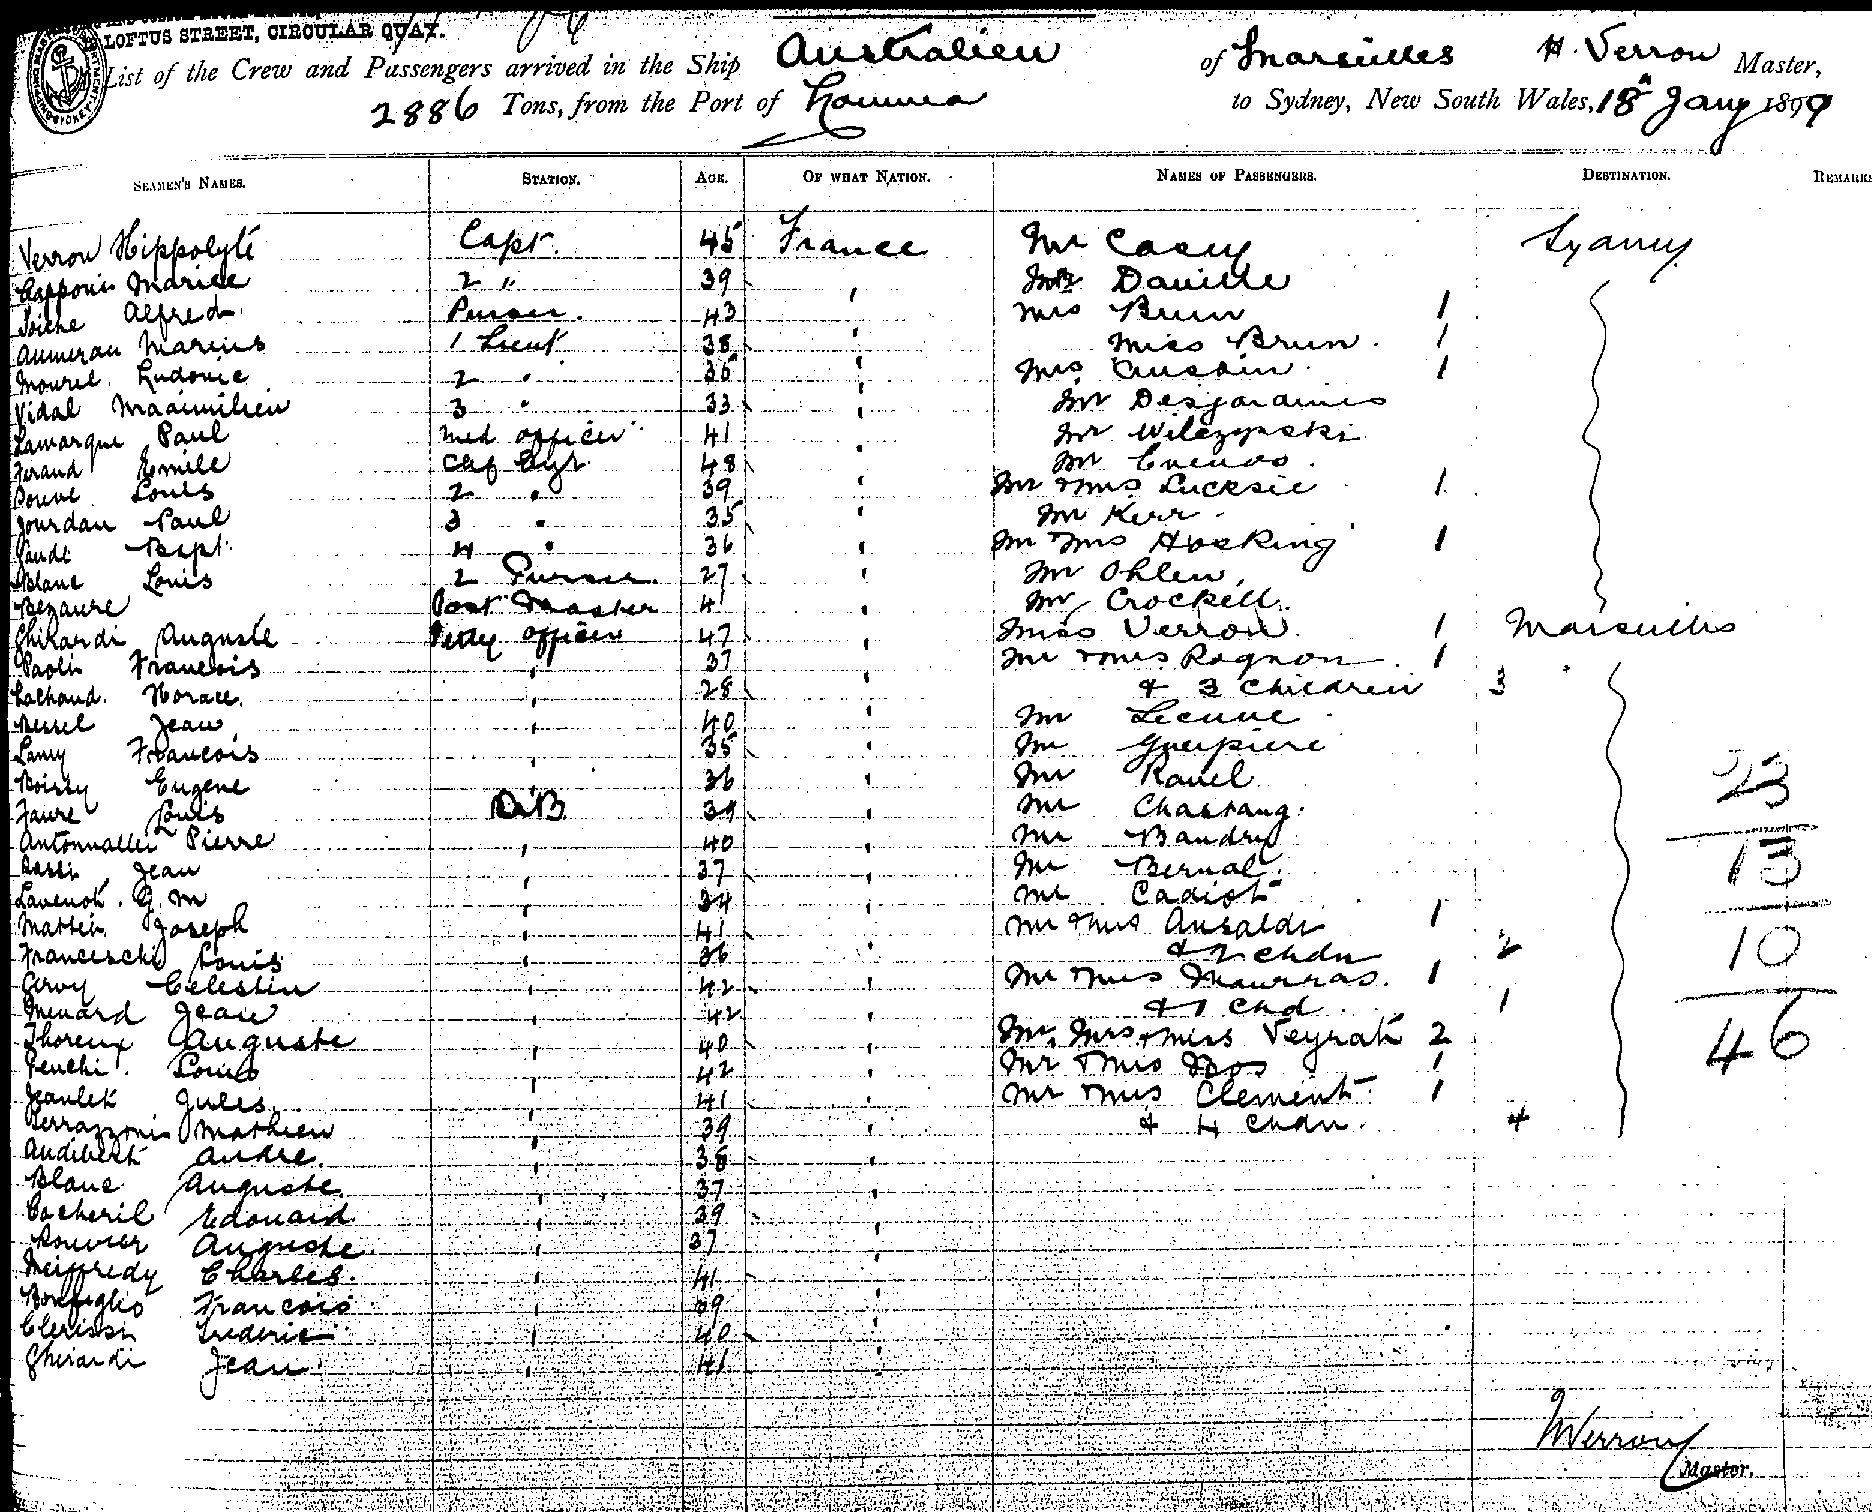 LOFTUS STREET, CIRCULAR QUAY.
List of the Crew and Passengers arrived in the Ship Australien of Marseilles H. Verron Master,
2886 Tons, from the Port of Noumea to Sydney, New South Wales, 18 Jany 1899
SEAMEN'S NAMES. STATION. AGE. OF WHAT NATION. NAMES OF PASSENGERS. DESTINATION. REMARKS
Verron Hippolyte Capt. 45 France Mr Casey Sydney
Capponi Marise 2 " 39 Danielle
Alfred Purser. 43 Mrs Brun 1
Aumerau Marius 1 Lieut 38 Miss Brun. 1
Mourel Ludovic 2 " 35 Mrs 1
Vidal Maximilien 3 " 33 Mr Desjardins
Lamarque Paul Med officer 41 Mr Wilczynski
Feraud Emile 48 Mr
Louis 2 " 39 Mr & Mrs Lucksie 1
Jourdan Paul 3 " 35 Mr Kerr
Bapt. 4 " 36 Mr & Mrs Hosking 1
Blanc Louis 2 Purser 27 Mr Ohlen
Bezaure Post Master 41 Mr Crockett
Ghirardi Auguste Petty officer 47 Miss Verron 1 Marseilles
Paoli Francois 37 Mr & Mrs Rognon. 1
Lachaud. Horace. 28 & 3 Children 3
Jean 40 Mr
Lamy Francois 35 Mr Guepiere
Boissy Eugene 36 Mr Ravel 23
Faure Louis 39 Mr Chastang.
Pierre 40 Mr Baudry 13
Jean 37 Mr Bernal.
G. M 34 Mr Cadiot
Mattei Joseph 41 Mr & Mrs Ansaldi 1
Franceschi Louis 36 & 2 chdn 2 10
Gervy Celestin 42 Mr & Mrs Maurras. 1
Menard Jean 42 & 1 chd 1
Thoreux Auguste 40 Mr. Mrs & Miss Veyrat 2 46
Louis 42 Mr & Mrs Nos 1
Jules 41 Mr & Mrs Clement 1
Mathieu 39 & 4 chdn. 4
Audibert Andre. 38
Blanc Auguste. 37
Pocheril Edouard 39
Rouvier Auguste 37
Meiffredy Charles. 41
Bonfiglio Francois 39
Clerissi Frederic 40
Gherardi Jean 41
HVerron
Master.